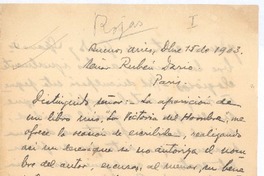 Rojas I
Buenos aires, Dbre 15 de 1903.
Señor Rubén Darío
Paris.
Distinguido señor: La aparición de
un libro mío, "La Victoria del Hombre", me
ofrece la ocasión de escribirle, realizando
así un deseo que si no autoriza el nom-
bro del autor, excusa, al menos, un buen